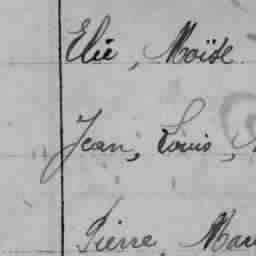 Elie, Moïse
Jean, Louis,
Pierre, Mau